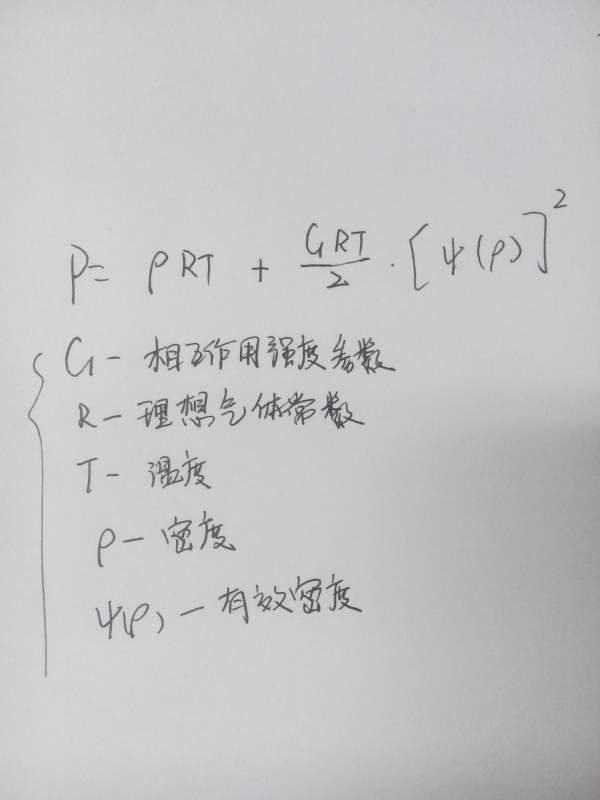 P = ρRT + GRT/2 · [ψ(ρ)]²
G — 相互作用强度参数
R — 理想气体常数
T — 温度
ρ — 密度
ψ(ρ) — 有效密度